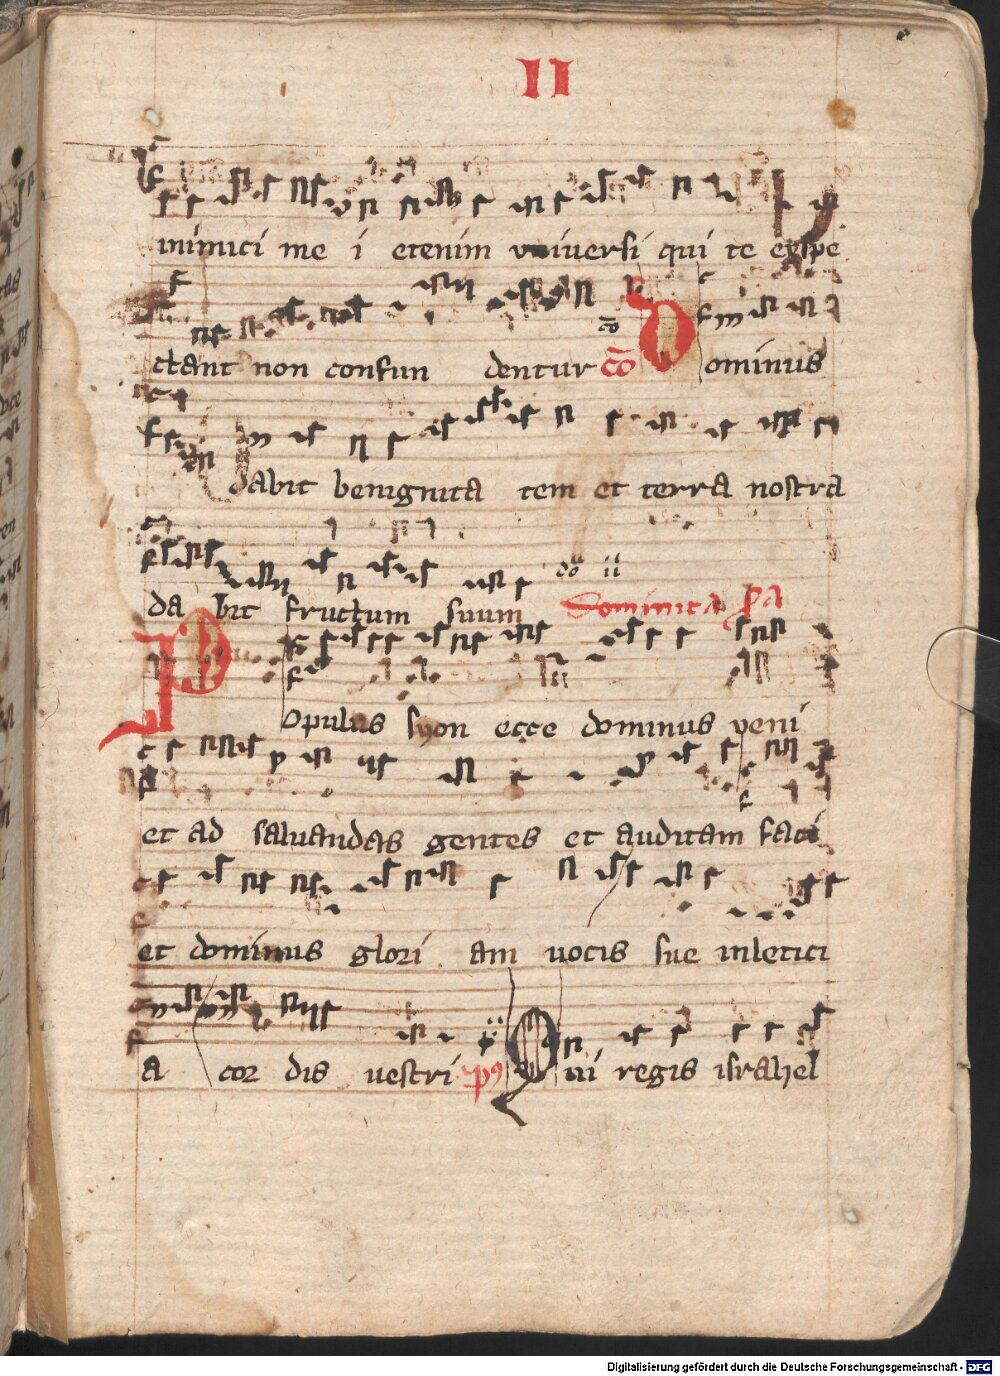 II
inimici me i etenim universi qui te exspe
ctant non confun dentur co Dominus
dabit benignita tem et terra nostra
da bit fructum suum Dominica sa
Populus syon ecce dominus veni
et ad saluandas gentes et auditam faci
et dominus glori am uocis sue inletici
a cor dis uestri ps Qui regis israhel
Digitalisierung gefördert durch die Deutsche Forschungsgemeinschaft - DFG